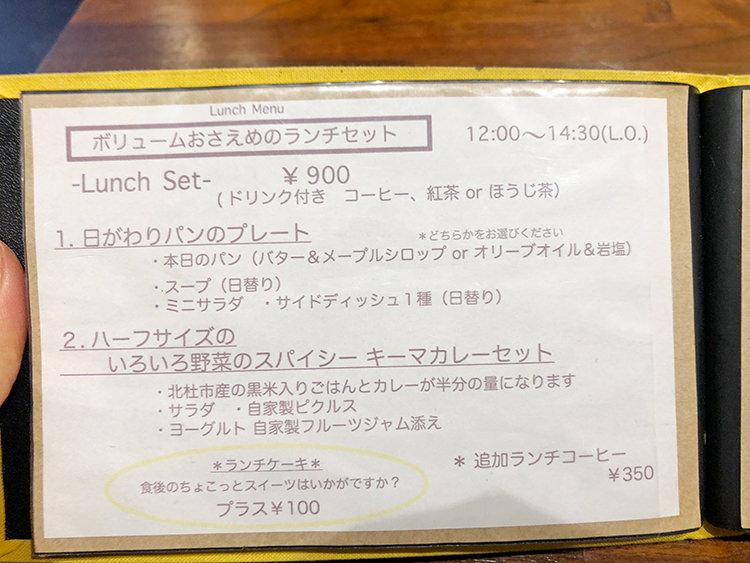 Lunch Menu
ボリュームおさえめのランチセット 12:00〜14:30(L.O.)
-Lunch Set- ¥900
(ドリンク付き コーヒー、紅茶 or ほうじ茶)
1. 日がわりパンのプレート *どちらかをお選びください
・本日のパン(バター&メープルシロップ or オリーブオイル&岩塩)
・スープ(日替り)
・ミニサラダ ・サイドディッシュ1種(日替り)
2. ハーフサイズの
いろいろ野菜のスパイシー キーマカレーセット
・北杜市産の黒米入りごはんとカレーが半分の量になります
・サラダ ・自家製ピクルス
・ヨーグルト 自家製フルーツジャム添え
*ランチケーキ*
食後のちょこっとスイーツはいかがですか?
プラス¥100
* 追加ランチコーヒー
¥350